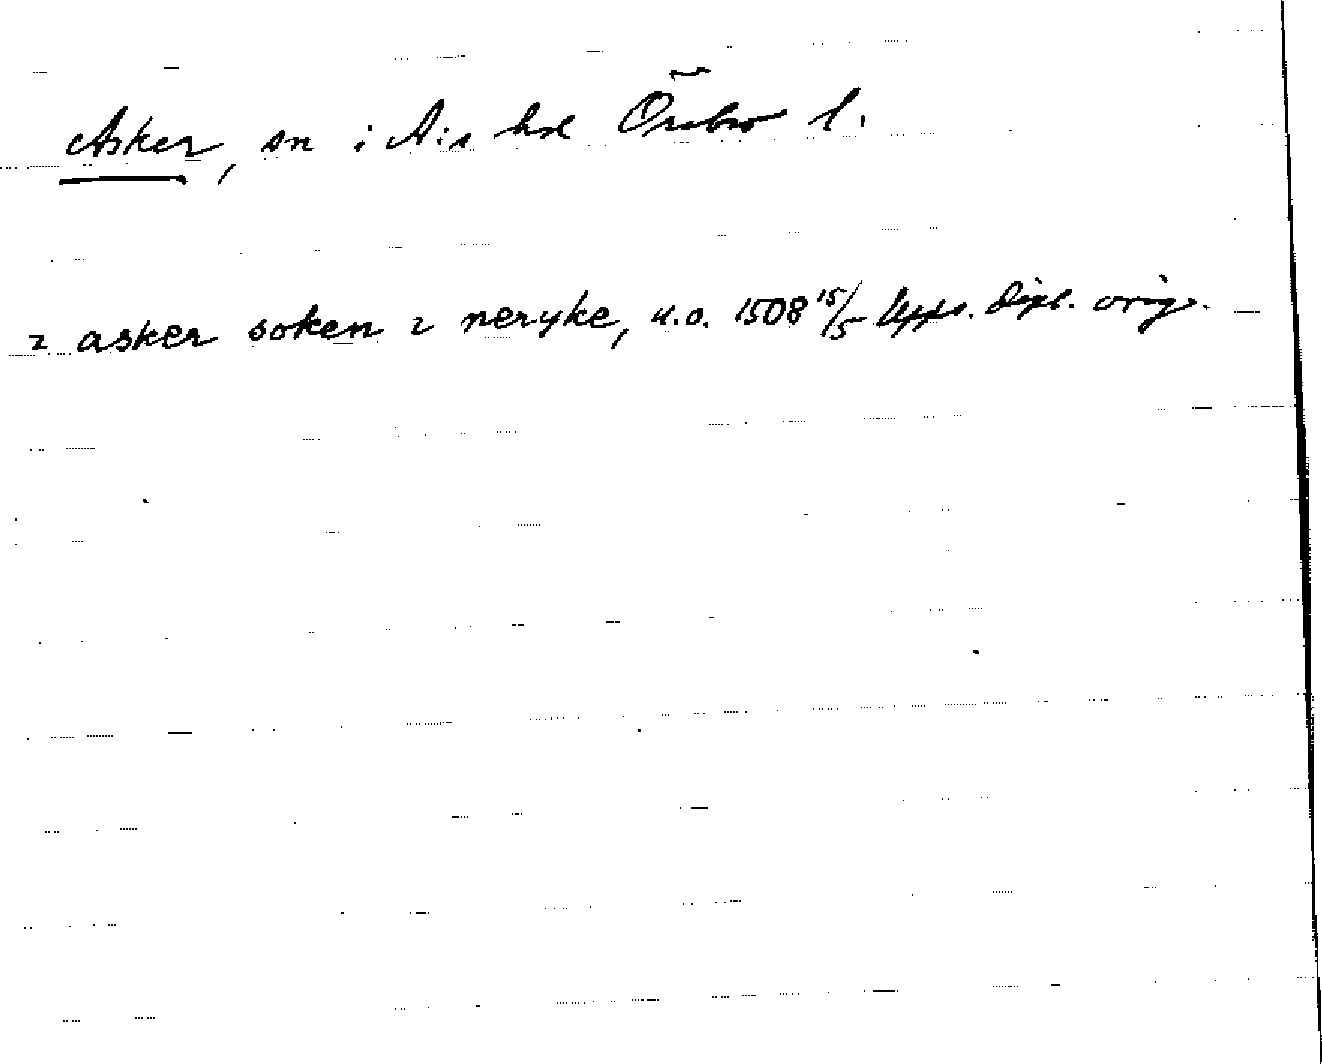 Asker, sn i A:s hd Örebro l.
ı asker soken ı neryke, u.o. 1508 15/5 Upps. Dipl. orig.